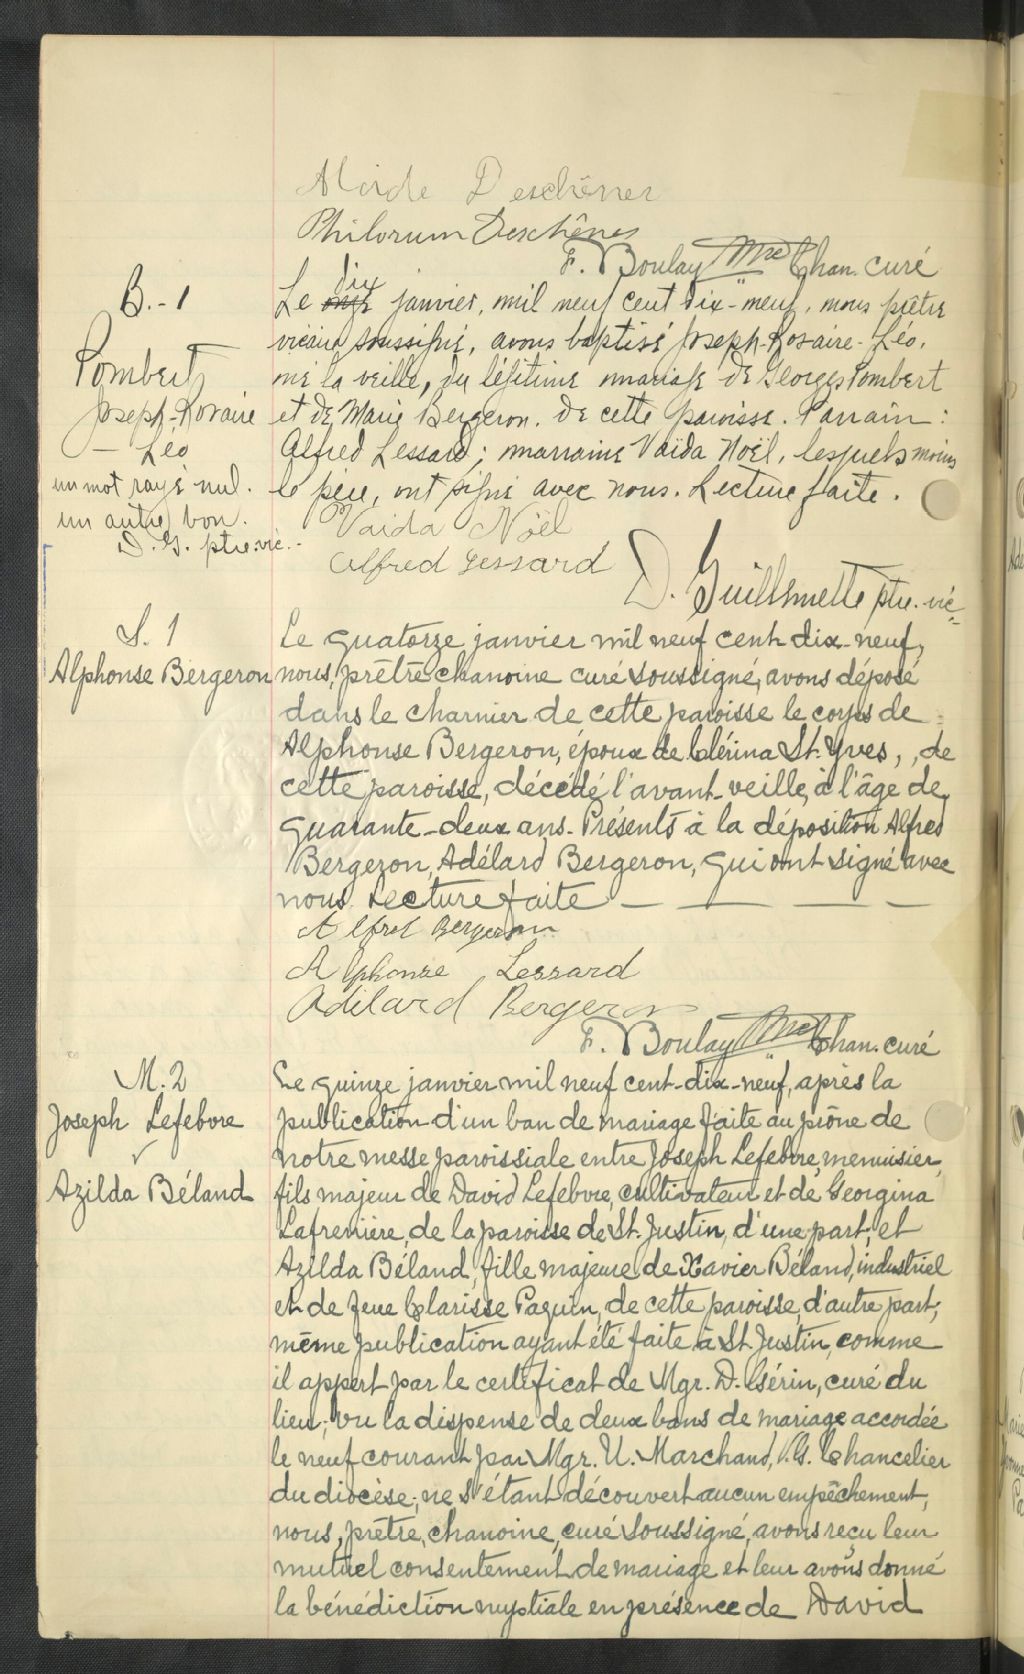 Alcide Deschênes
Philorum Deschênes
F. Boulay Ptre Chan. curé
B.-1
Pombert
Joseph-Rosaire
- Léo
un mot rayé nul.
un autre bon.
D. G. ptre. vic.-
Le onze dix janvier, mil neuf cent dix-neuf, nous prêtre
vicaire soussigné, avons baptisé Joseph-Rosaire-Léo,
né la veille, du légitime mariage de Georges Pombert
et de Marie Bergeron. de cette paroisse. Parrain :
Alfred Lessard ; marraine Vaïda Noël, lesquels moins
le père, ont signé avec nous. Lecture faite.
Vaida Noël
Alfred Lessard
D. Guillemette ptre. vic.
S. 1
Alphonse Bergeron
Le quatorze janvier mil neuf cent dix-neuf,
nous, prêtre chanoine curé soussigné, avons déposé
dans le charnier de cette paroisse le corps de
Alphonse Bergeron, époux de Clérina St. Yves, de
cette paroisse, décédé l'avant-veille, à l'âge de
quarante-deux ans. Présents à la déposition Alfred
Bergeron, Adélard Bergeron, qui ont signé avec
nous. Lecture faite — — — —
Alfred Bergeron
Alphonse Lessard
Adélard Bergeron
F. Boulay Ptre Chan. curé
M. 2
Joseph Lefebvre
✓
Azilda Béland
Le quinze janvier mil neuf cent-dix-neuf, après la
publication d'un ban de mariage faite au prône de
notre messe paroissiale entre Joseph Lefebvre, menuisier,
fils majeur de David Lefebvre, cultivateur et de Georgina
Lafrenière, de la paroisse de St. Justin, d'une part, et
Azilda Béland, fille majeure de Xavier Béland, industriel
et de feue Clarisse Paquin, de cette paroisse, d'autre part;
même publication ayant été faite à St. Justin, comme
il appert par le certificat de Mgr. D. Gérin, curé du
lieu; vu la dispense de deux bans de mariage accordée
le neuf courant par Mgr. U. Marchand, V.G. Chancelier
du diocèse; ne s'étant découvert aucun empêchement,
nous, prêtre, chanoine, curé soussigné, avons reçu leur
mutuel consentement de mariage et leur avons donné
la bénédiction nuptiale en présence de David